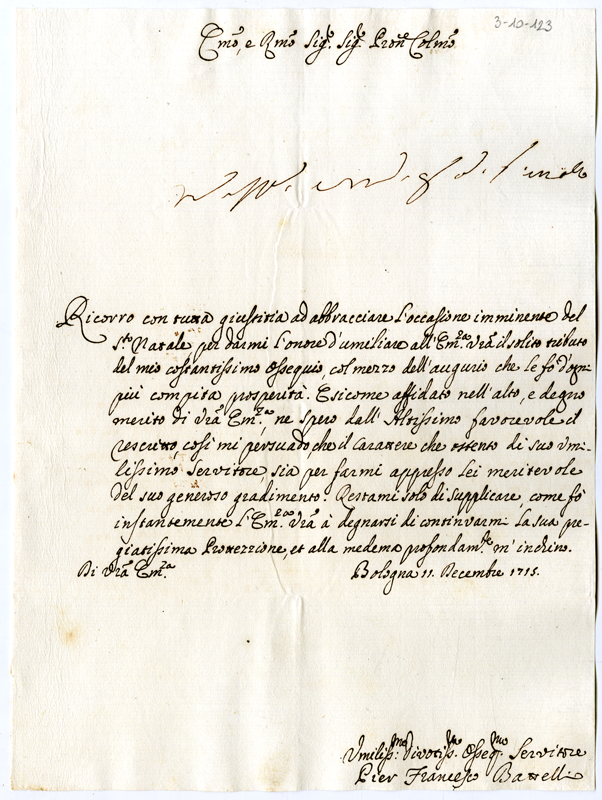 3-10-123
Emo, e Rmo Sigr. Sigr. Pron Colmo
Ricorro con tutta giustitia ad abbracciare l'occasione imminente del
Sto. Natale per darmi l'onore d'umeliare all'Emza. Vra il solito tributo
del mio costantissimo Ossequio, col mezzo dell'augurio che le fò d'ogni
più compita prosperità. E sicome affidato nell'alto, e degno
merito di Vra Emza., ne spero dall'Altissimo favorevole il
rescritto, così mi persuado che il Carattere che ostento di suo Vmi-
lissimo Servitore, sia per farmi appresso Lei meritevole
del suo generoso gradimento. Restami solo di supplicare, come fò
instantemente l'Emza. Vra à degnarsi di continvarmi la sua pre-
giatissima Protterzione, et alla medema profondamte. m'inchino.
Di Vra Emza.
Bologna 11. Decembre 1715.
Vmilissmo. Divotissmo. Osseqmo. Servitore
Pier Francesco Battelli